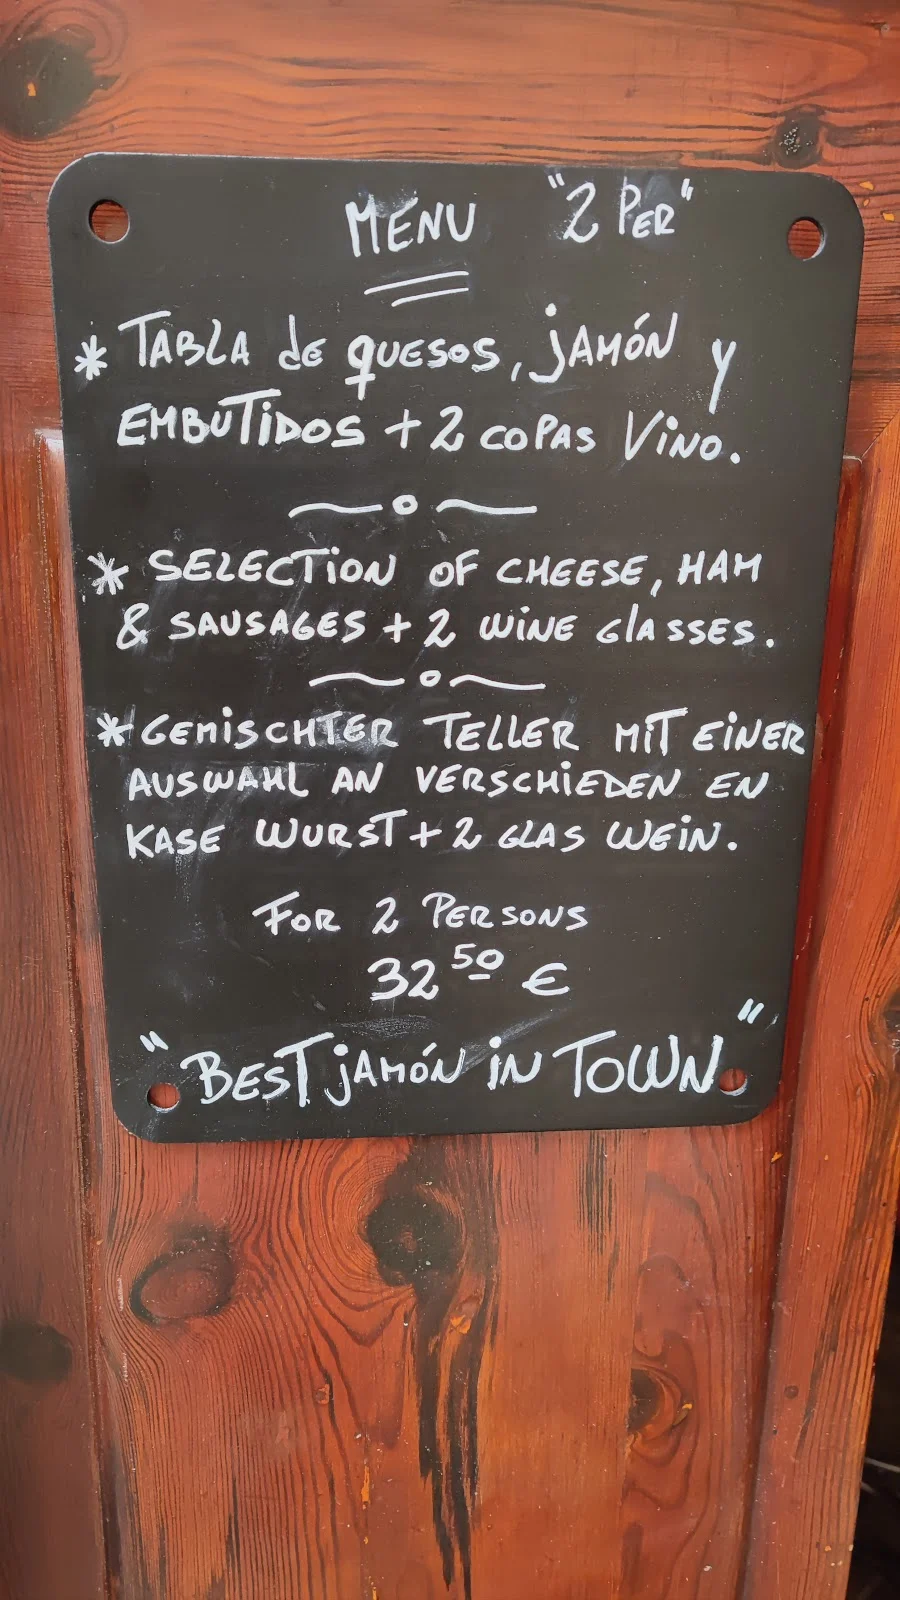 MENU "2 PER"
* TABLA de QUESOS, JAMÓN y
EMBUTIDOS + 2 COPAS VINO.
* SELECTION OF CHEESE, HAM
& SAUSAGES + 2 WINE GLASSES.
* GEMISCHTER TELLER MIT EINER
AUSWAHL AN VERSCHIEDEN EN
KASE WURST + 2 GLAS WEIN.
FOR 2 PERSONS
32 50 €
"BEST JAMÓN IN TOWN"